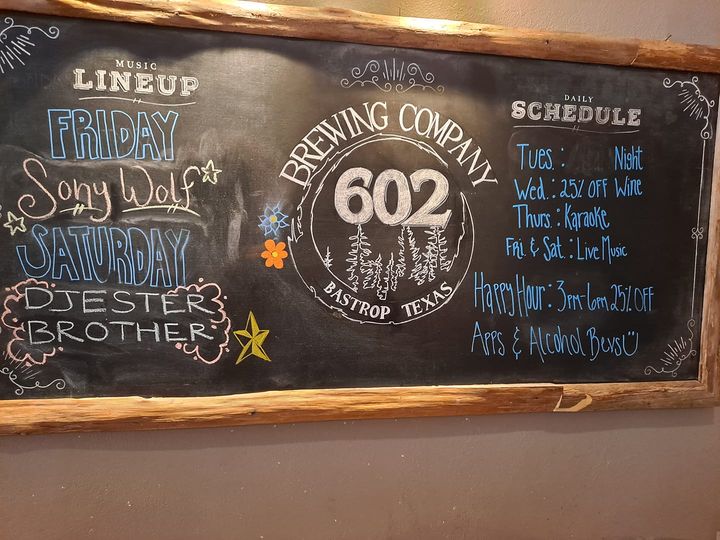 MUSIC
LINEUP
FRIDAY
Sony Wolf
SATURDAY
DJESTER
BROTHER
BREWING COMPANY
602
BASTROP TEXAS
DAILY
SCHEDULE
Tues.: Night
Wed.: 25% OFF Wine
Thurs.: Karaoke
Fri. & Sat.: Live Music
Happy Hour: 3pm-6pm 25% OFF
Apps & Alcohol Bevs!